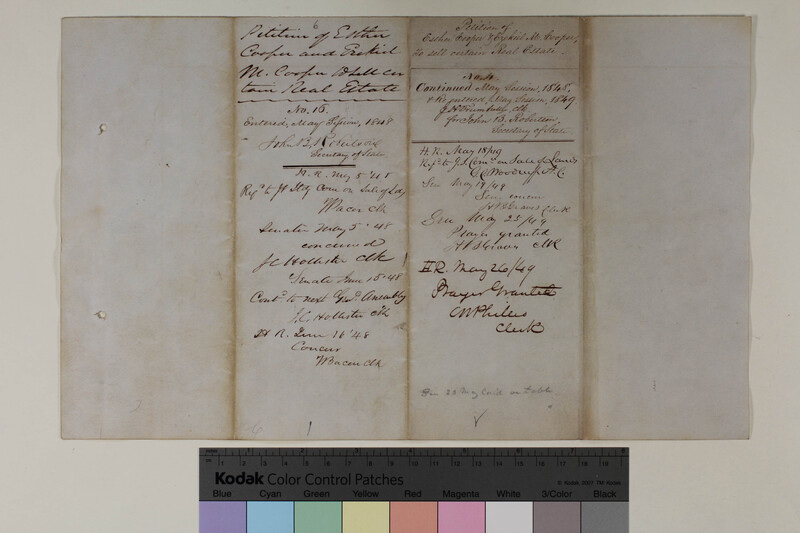 Petition of Esther
Cooper and Ezekiel
M. Cooper to sell cer
tain Real Estate
No. 16.
Entered, May Session, 1848
John B. Robertson
Secretary of State
H. R. May 5 '48
Refd to Jt Stg Com. on Sale of Lds
W Bacon Clk
Senate May 5 '48
concurred
J. C. Hollister Clk
Senate June 15 '48
Contd to next Genl Assembly
J. C. Hollister Clk
H. R. June 16 '48
Concur
W Bacon Clk
Petition of
Esther Cooper & Ezekiel M. Cooper,
to sell certain Real Estate.
No. 4.
Continued May Session, 1848.
& Re-entered, May Session, 1849
J. H. Trumbull, Clk
for John B. Robertson,
Secretary of State
H. R. May 18/49
Refd to Jt Comee on Sale of Lands
Sen May 19/49
Sen. concur
H B Graves Clerk
Sen May 25/49
Prayer granted
H B Graves Clk
H R. May 26/49
Prayer Granted
Clerk
Sen 22 May laid on table
Kodak Color Control Patches
© Kodak, 2007 TM: Kodak
Blue Cyan Green Yellow Red Magenta White 3/Color Black